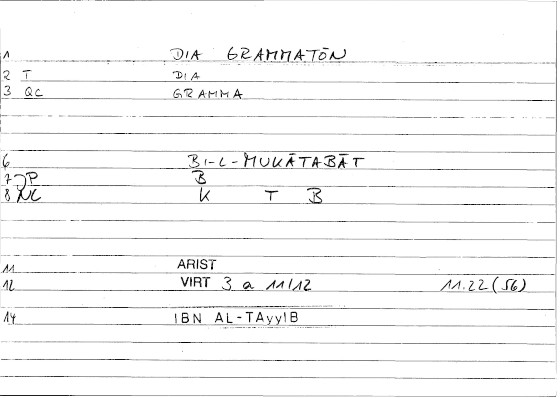 1 DIA GRAMMATŌN
2 T DIA
3 QC GRAMMA
6 BI-L-MUKĀTABĀT
7 P B
8 NC K T B
11 ARIST
12 VIRT 3 a 11/12 11.22 (56)
14 IBN AL-TAyyIB